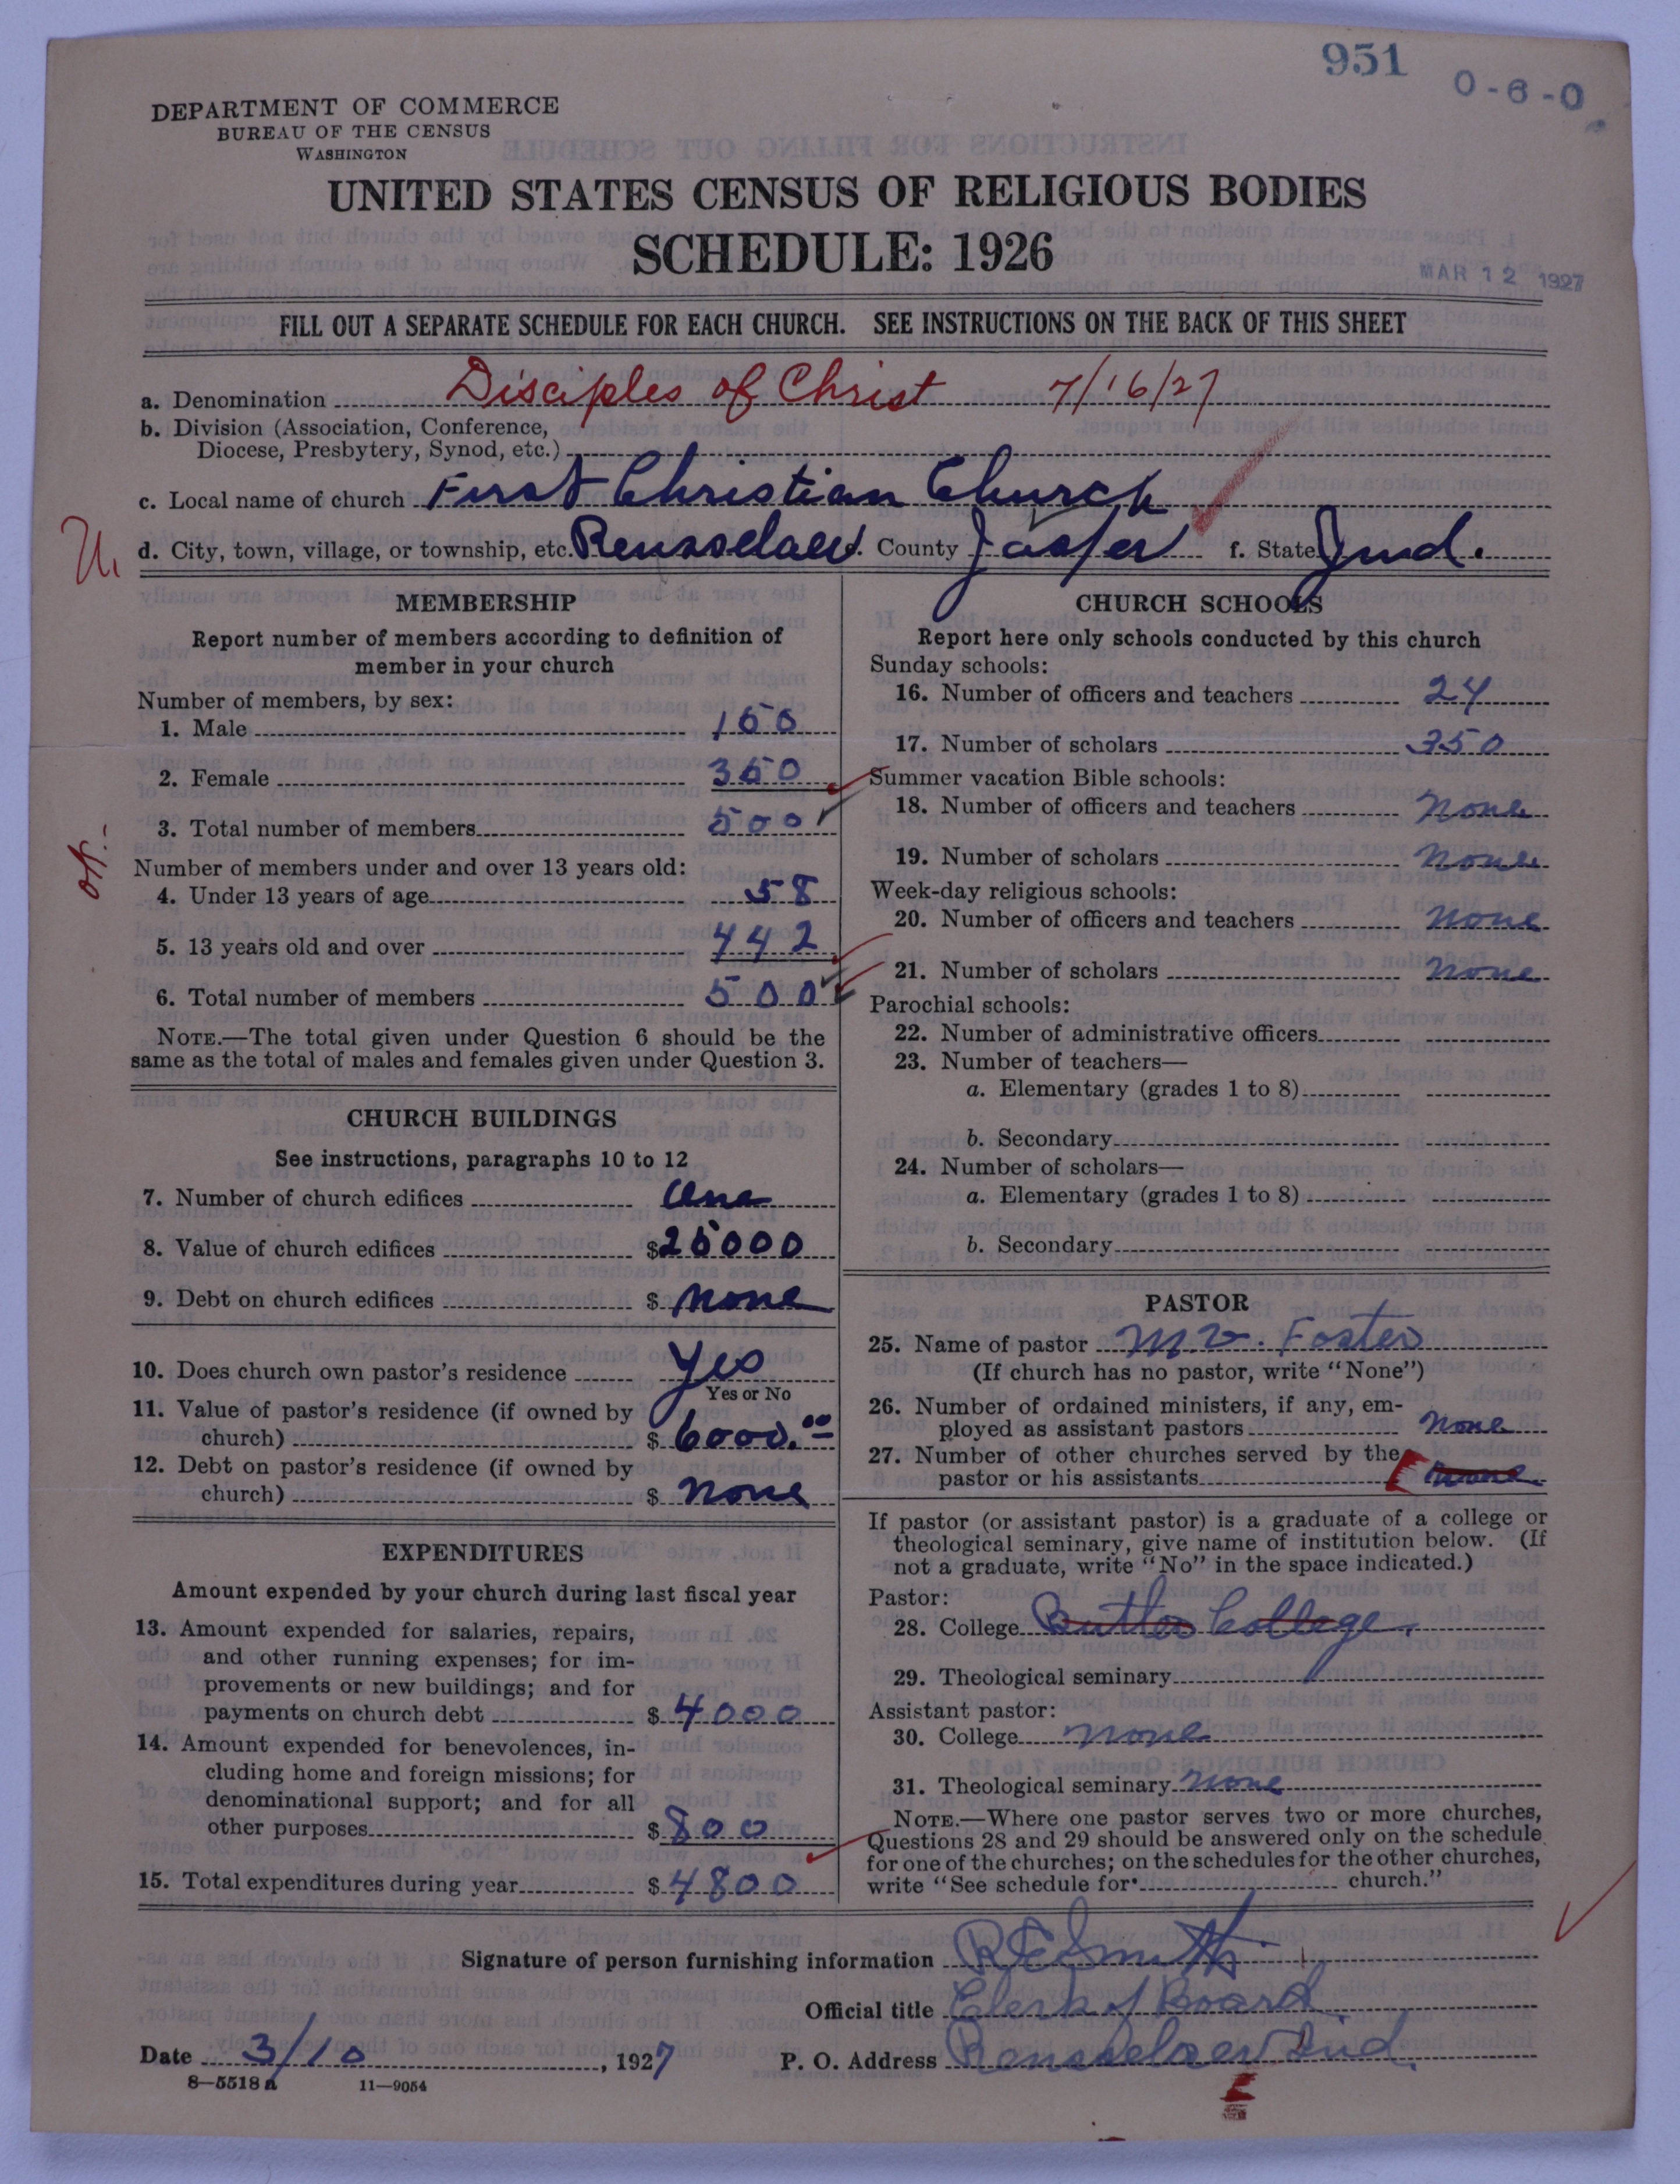 951
0-6-0
DEPARTMENT OF COMMERCE
BUREAU OF THE CENSUS
WASHINGTON
UNITED STATES CENSUS OF RELIGIOUS BODIES
SCHEDULE: 1926
MAR 12 1927
FILL OUT A SEPARATE SCHEDULE FOR EACH CHURCH. SEE INSTRUCTIONS ON THE BACK OF THIS SHEET
a. Denomination Disciples of Christ 7/16/27
b. Division (Association, Conference,
Diocese, Presbytery, Synod, etc.)
c. Local name of church First Christian Church
d. City, town, village, or township, etc. Rensselaer. County Jasper f. State Ind.
MEMBERSHIP
Report number of members according to definition of
member in your church
Number of members, by sex:
1. Male 150
2. Female 350
3. Total number of members 500
Number of members under and over 13 years old:
4. Under 13 years of age 58
5. 13 years old and over 442
6. Total number of members 500
NOTE.—The total given under Question 6 should be the
same as the total of males and females given under Question 3.
CHURCH BUILDINGS
See instructions, paragraphs 10 to 12
7. Number of church edifices One
8. Value of church edifices $25000
9. Debt on church edifices $ None
10. Does church own pastor's residence Yes
Yes or No
11. Value of pastor's residence (if owned by
church) $ 6000.00
12. Debt on pastor's residence (if owned by
church) $ None
EXPENDITURES
Amount expended by your church during last fiscal year
13. Amount expended for salaries, repairs,
and other running expenses; for im-
provements or new buildings; and for
payments on church debt $ 4000
14. Amount expended for benevolences, in-
cluding home and foreign missions; for
denominational support; and for all
other purposes $ 800
15. Total expenditures during year $ 4800
CHURCH SCHOOLS
Report here only schools conducted by this church
Sunday schools:
16. Number of officers and teachers 24
17. Number of scholars 350
Summer vacation Bible schools:
18. Number of officers and teachers None
19. Number of scholars None
Week-day religious schools:
20. Number of officers and teachers None
21. Number of scholars None
Parochial schools:
22. Number of administrative officers
23. Number of teachers—
a. Elementary (grades 1 to 8)
b. Secondary
24. Number of scholars—
a. Elementary (grades 1 to 8)
b. Secondary
PASTOR
25. Name of pastor M. V. Foster
(If church has no pastor, write "None")
26. Number of ordained ministers, if any, em-
ployed as assistant pastors None
27. Number of other churches served by the
pastor or his assistants None
If pastor (or assistant pastor) is a graduate of a college or
theological seminary, give name of institution below. (If
not a graduate, write "No" in the space indicated.)
Pastor:
28. College Butler College.
29. Theological seminary
Assistant pastor:
30. College None
31. Theological seminary None
NOTE.—Where one pastor serves two or more churches,
Questions 28 and 29 should be answered only on the schedule
for one of the churches; on the schedules for the other churches,
write "See schedule for church."
Signature of person furnishing information R E Smith
Official title Clerk of Board
Date 3/10, 1927 P. O. Address Rensselaer Ind.
8—5518 a 11—9054